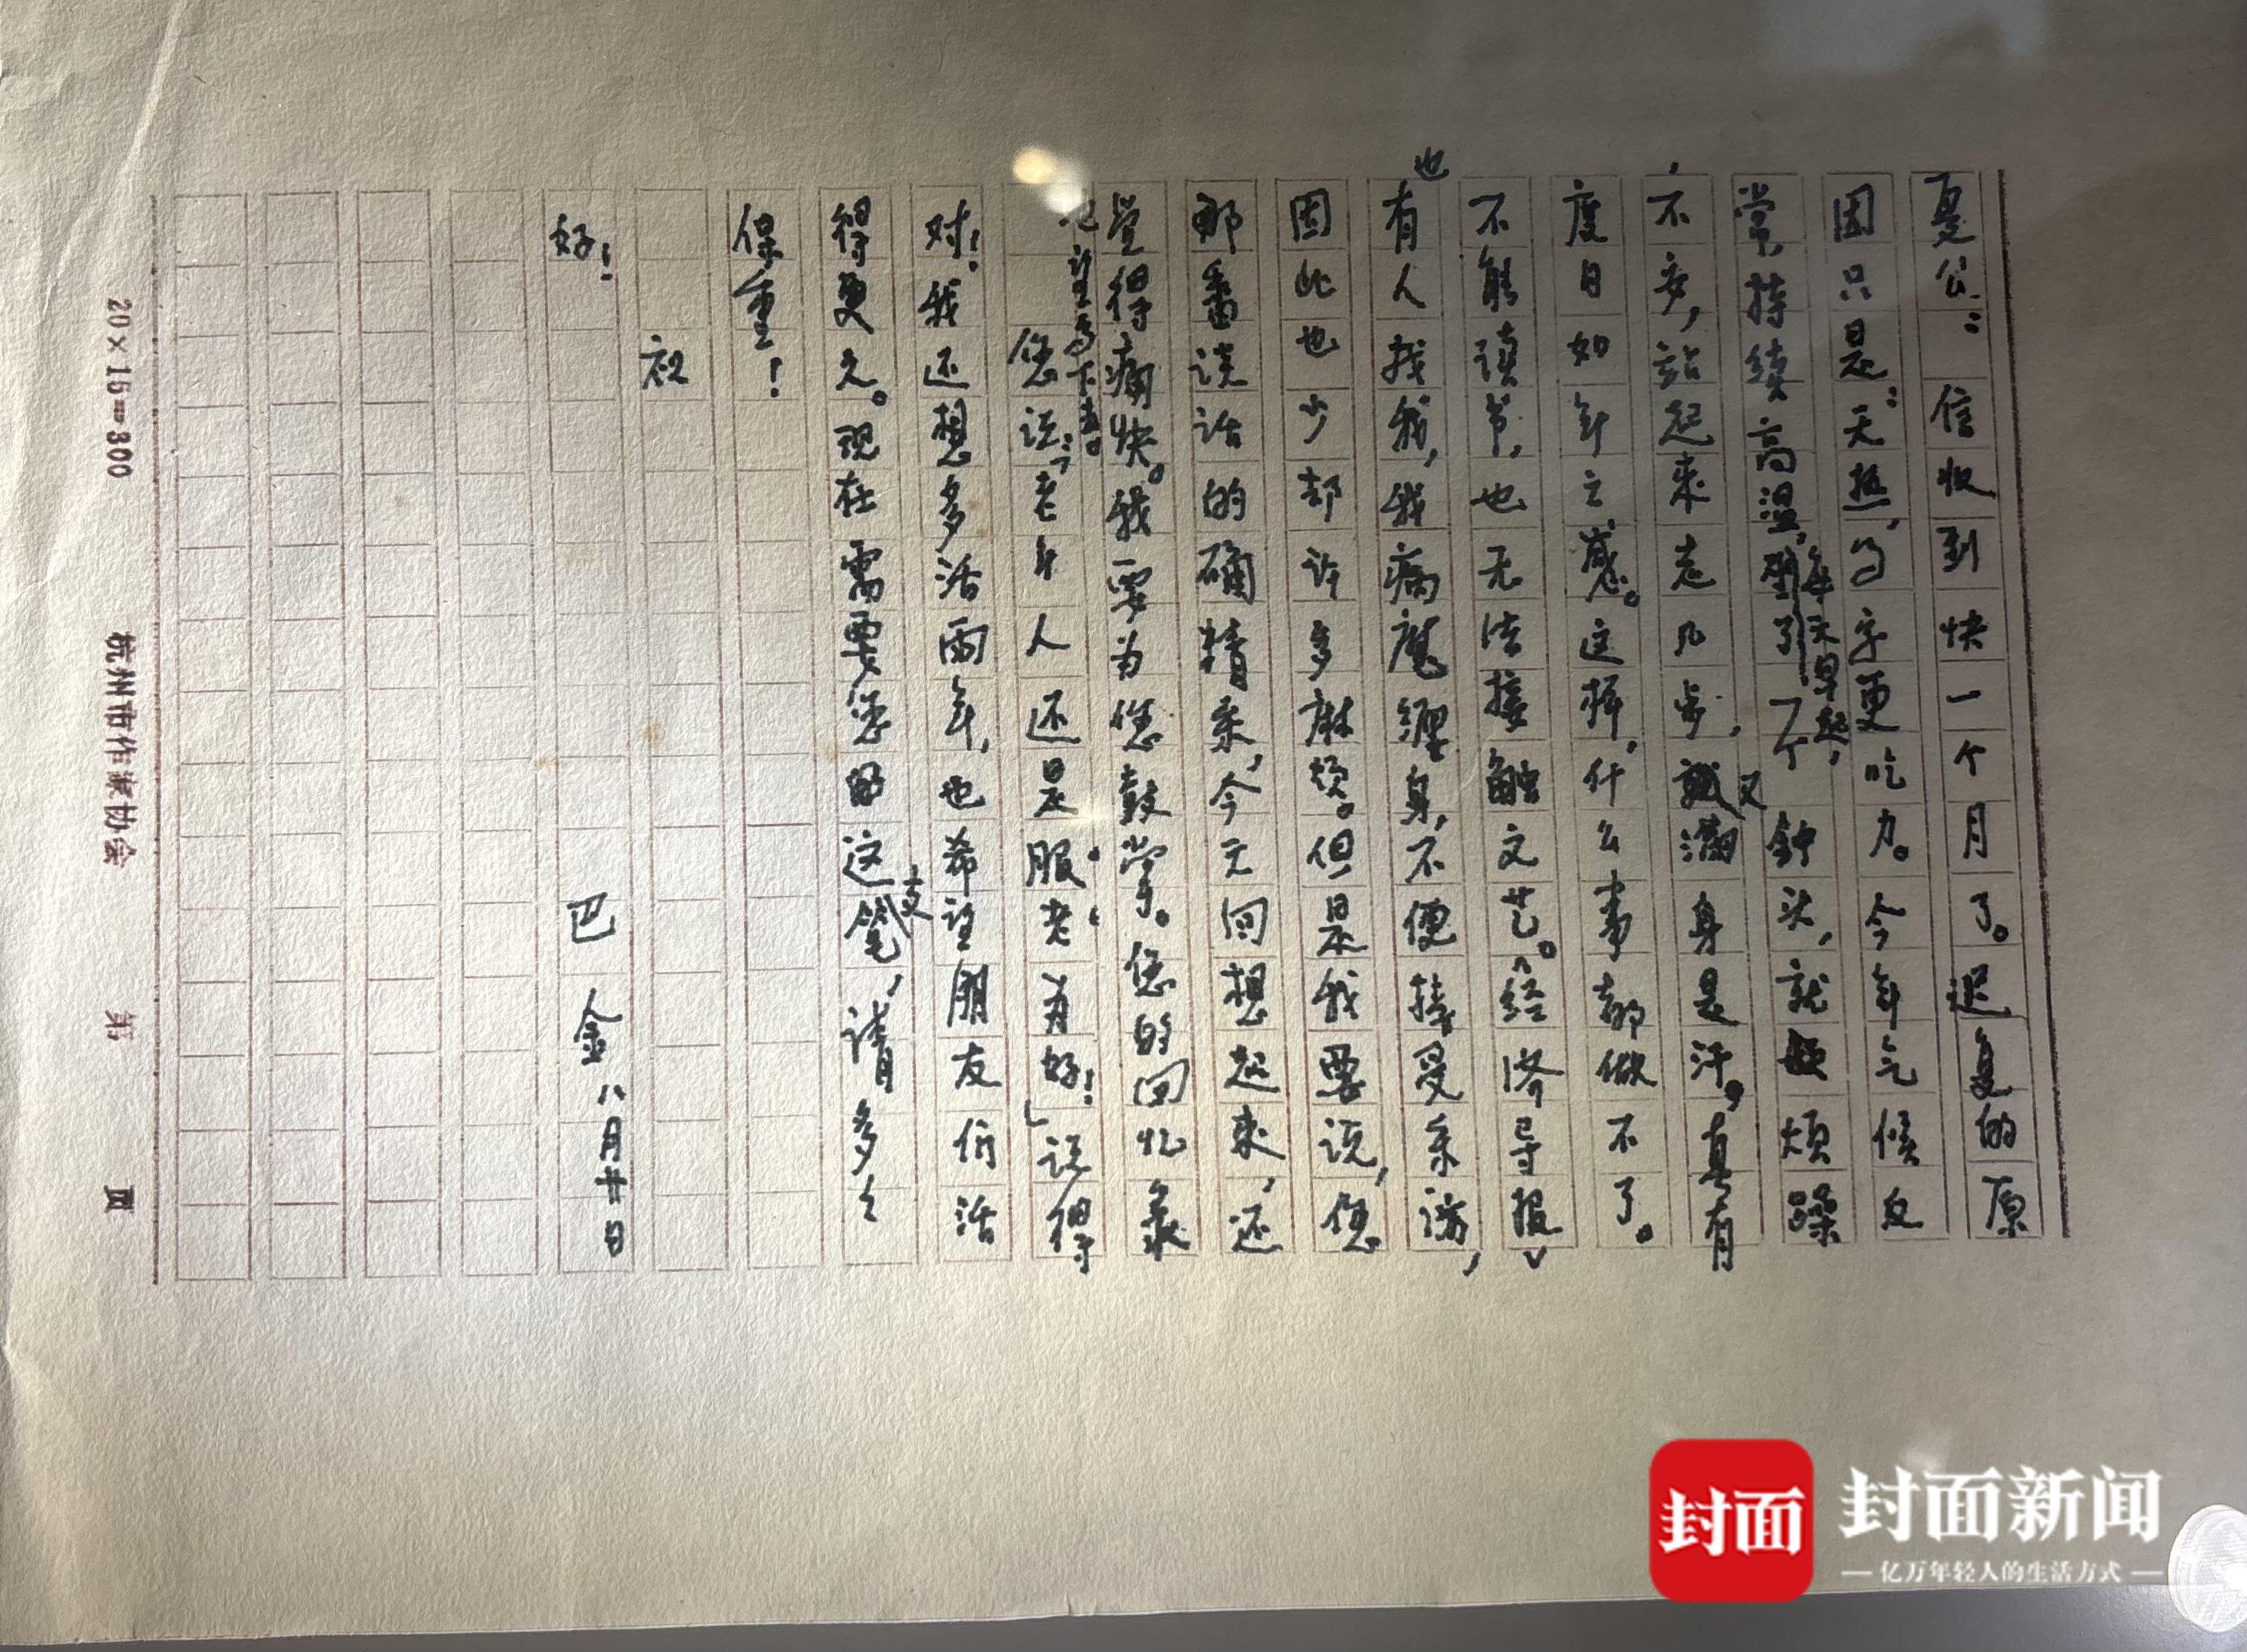 夏公：信收到快一个月了。迟复的原
因只是：天热，写字更吃力。今年气候反
常，持续高温，每天早起，了个钟头，就烦躁
不安，站起来走几步，又满身是汗。真有
度日如年之感。这样，什么事都做不了。
不能读书，也无法接触文艺。经济导报
也有人找我，我病魔缠身，不便接受采访，
因此也少却许多麻烦。但是我要说，您
那番谈话的确精采，今天回想起来，还
觉得痛快。我要为您鼓掌。您的回忆录
望写下去。
您说：“老年人还是服老为好！”说得
对！我还想多活两年，也希望朋友们活
得更久。现在需要您的这支笔，请多多
保重！
祝
好！
巴金 八月廿日
20×15=300
杭州市作家协会
第 页
封面
封面新闻
亿万年轻人的生活方式